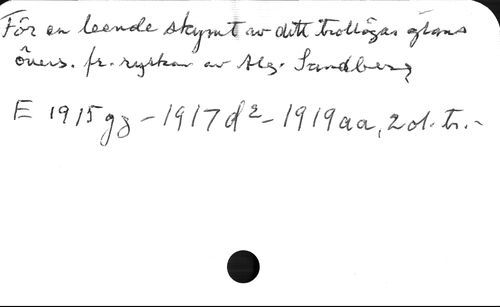 För en leende skymt av ditt trollögas glans
övers. fr. ryskan av Alg. Sandberg
E 1915gz - 1917d2 - 1919aa, 2 ol. tr. -